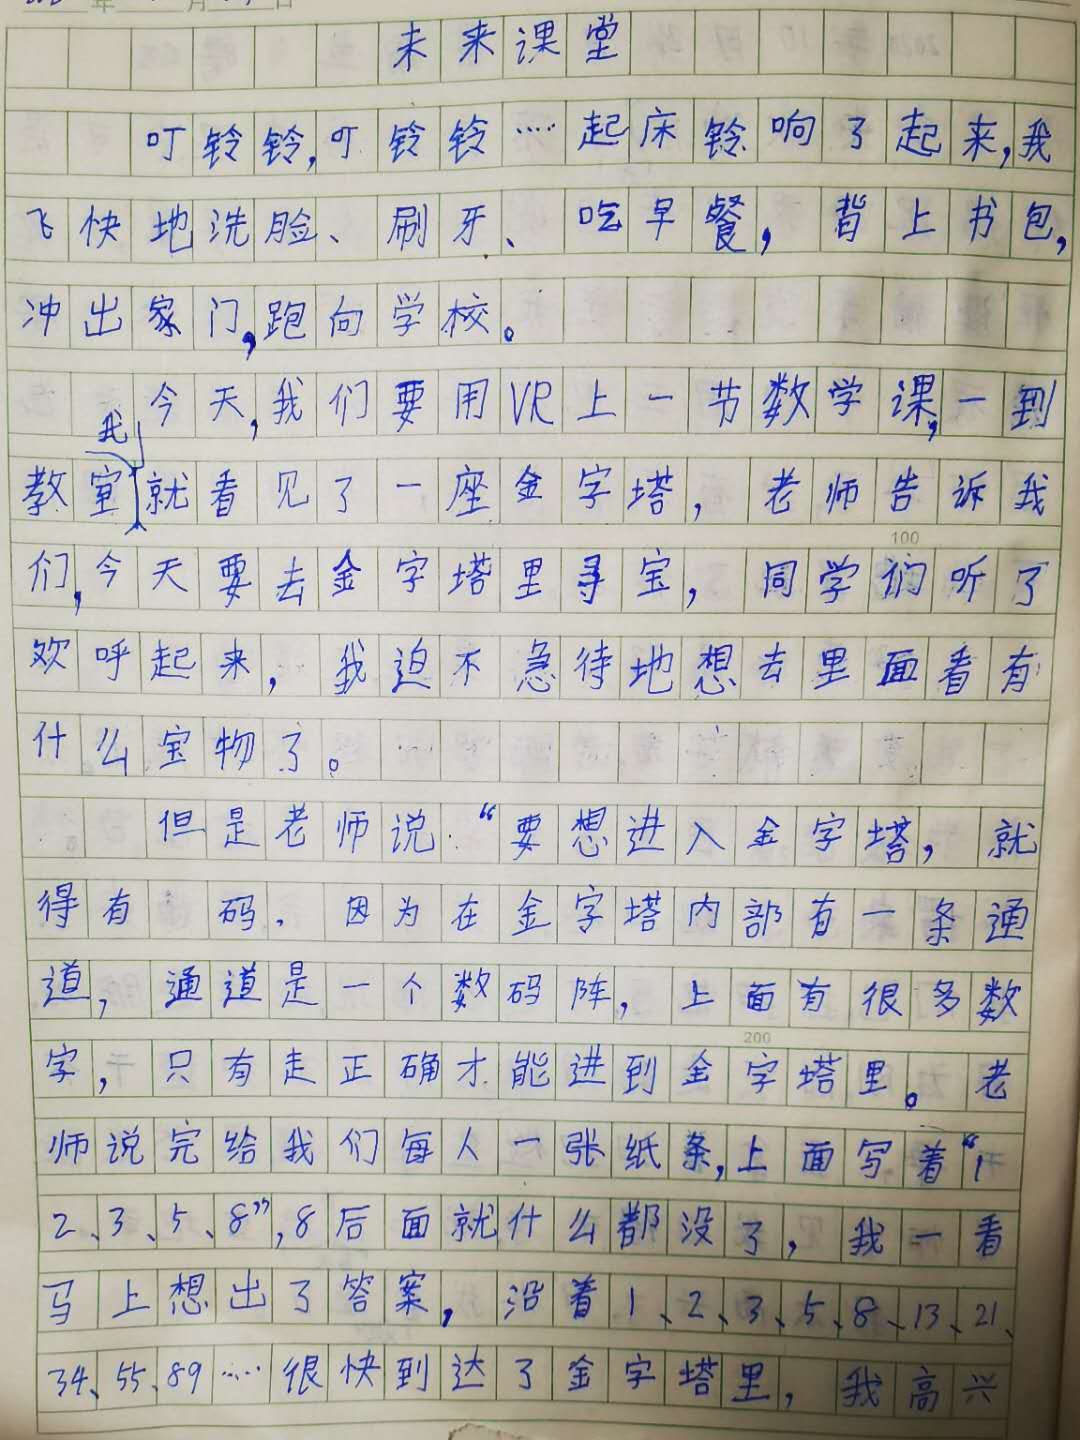 未来课堂
叮铃铃,叮铃铃……起床铃响了起来,我
飞快地洗脸、刷牙、吃早餐,背上书包,
冲出家门,跑向学校。
今天,我们要用VR上一节数学课,一到
我
教室就看见了一座金字塔,老师告诉我
100
们,今天要去金字塔里寻宝,同学们听了
欢呼起来,我迫不急待地想去里面看有
什么宝物了。
但是老师说:“要想进入金字塔,就
得有 码.因为在金字塔内部有一条通
道,通道是一个数码阵,上面有很多数
200
字,只有走正确才能进到金字塔里。老
师说完给我们每人一张纸条,上面写着“1
2、3、5、8”,8后面就什么都没了,我一看
马上想出了答案,沿着1、2、3、5、8、13、21、
34、55、89……很快到达了金字塔里,我高兴